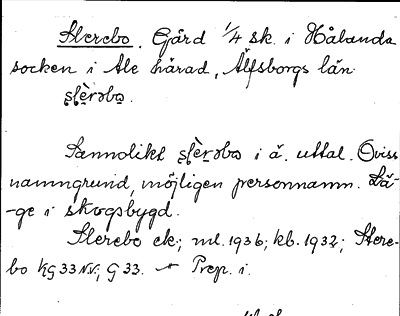 Slerebo. Gård 1/4 sk. i Hålanda
socken i Ale härad, Älfsborgs län.
s̨lèrəbo̤.
Sannolikt s̨lèrəbo i ä. uttal. Oviss
namngrund, möjligen personnamn. Lä-
-ge i skogsbygd.
Slerebo ek; ml. 1936; kb. 1932; Slere-
bo KG 33 NV; G 33. — Prep. i.